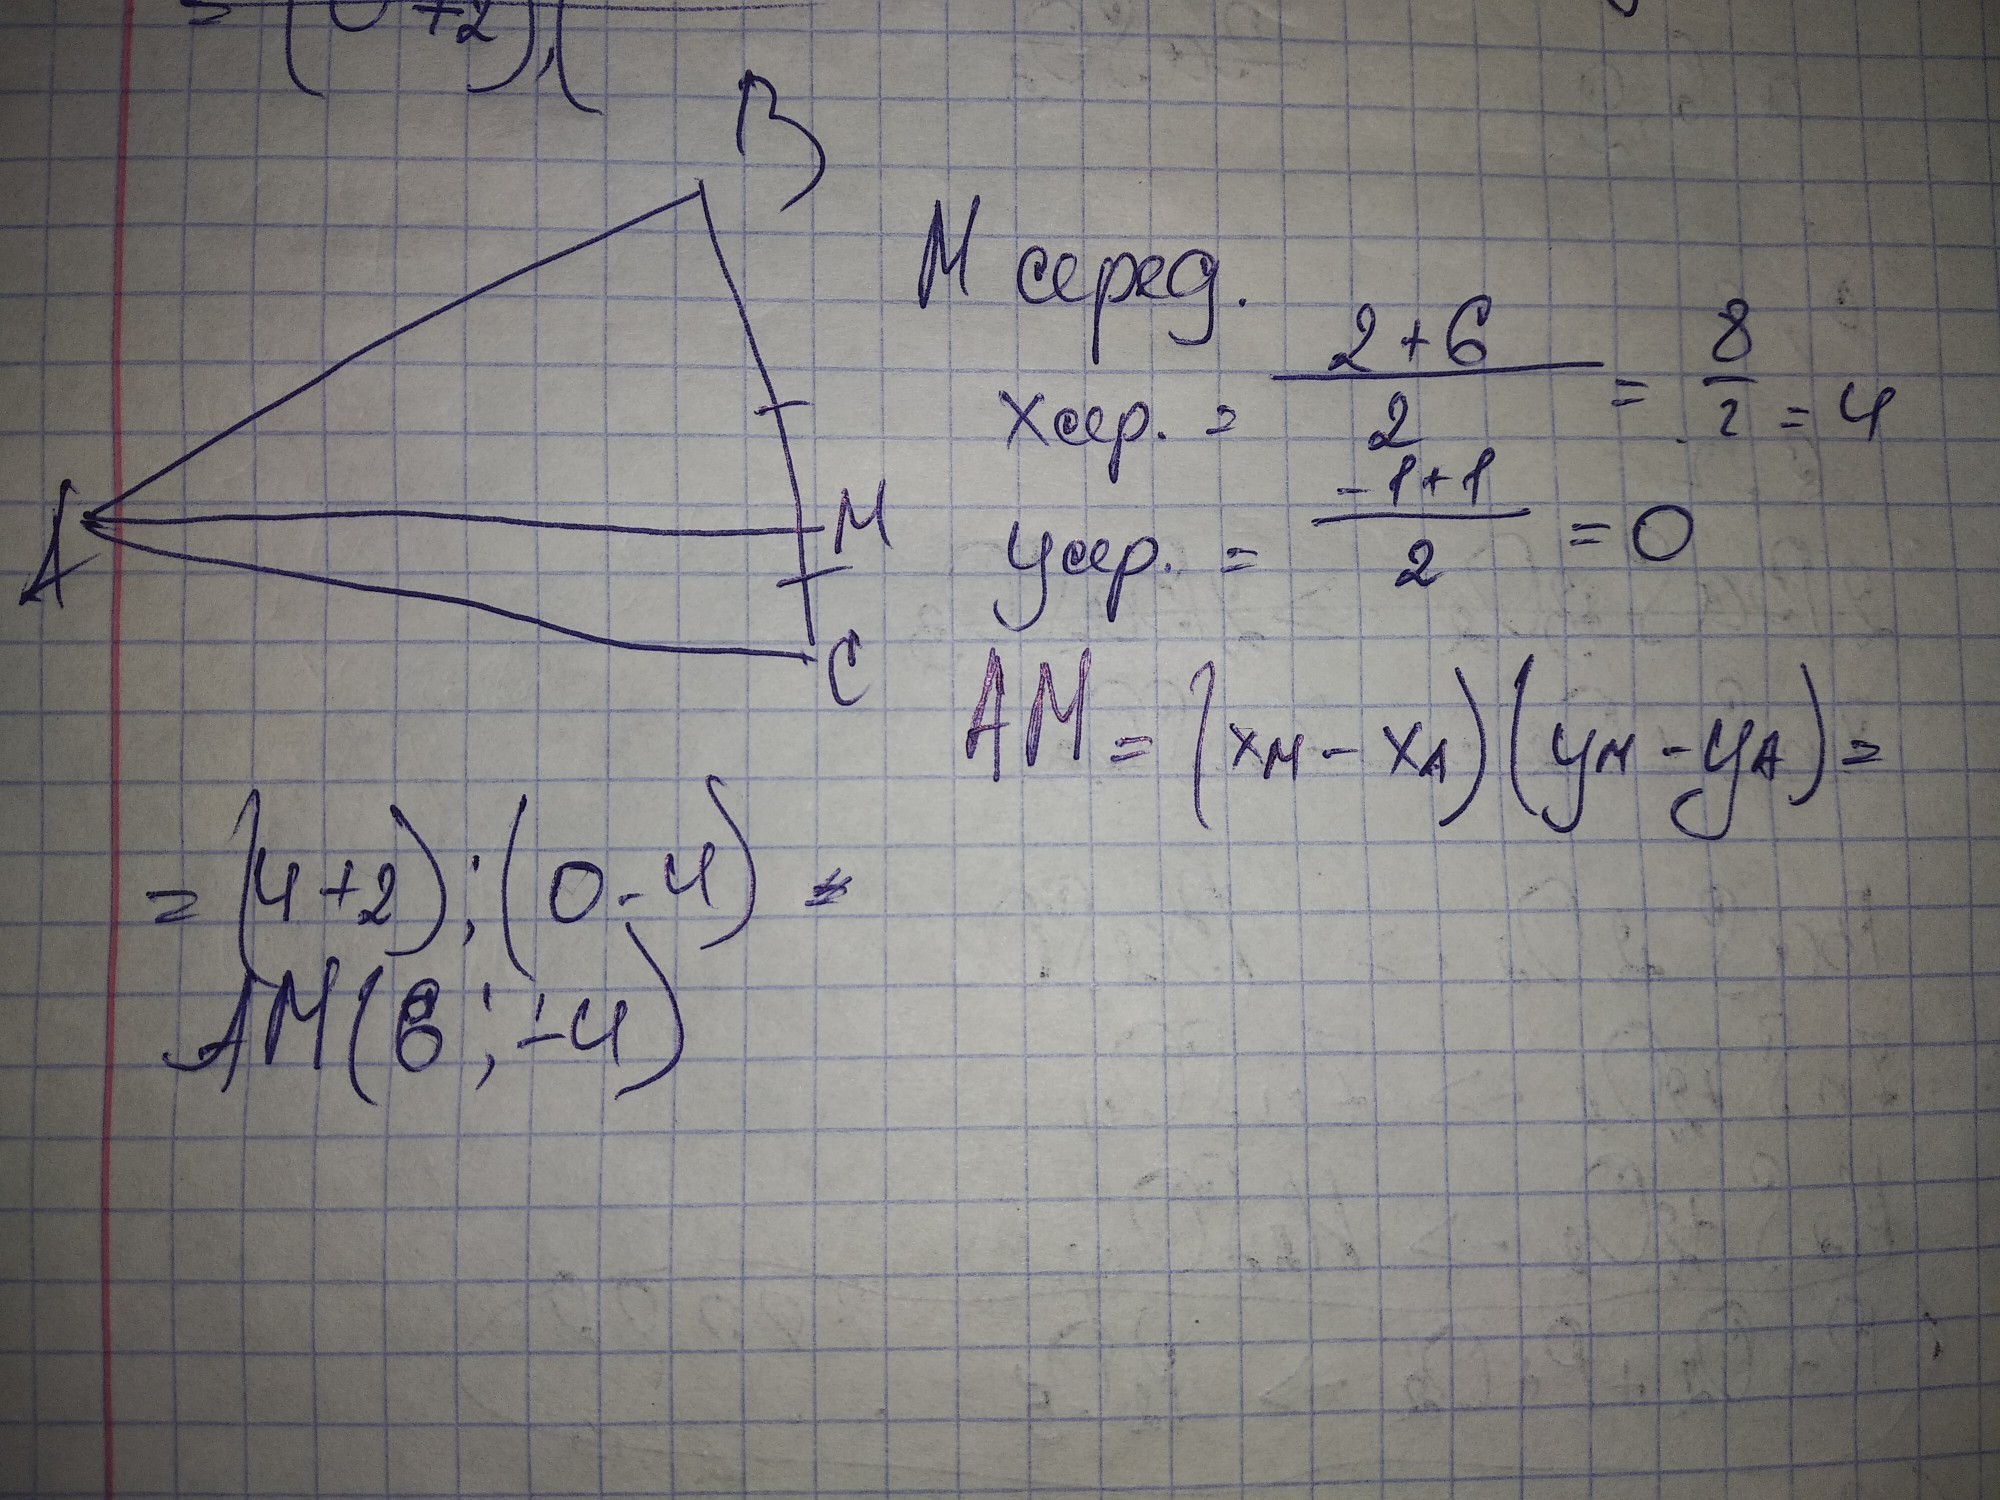 = (0+2);(
B
М серед.
xсер. = \frac{2+6}{2} = \frac{8}{2} = 4
yсер. = \frac{-1+1}{2} = 0
A
M
C
AM = (xM - xA)(yM - yA) =
= (4+2);(0-4) =
AM(6;-4)